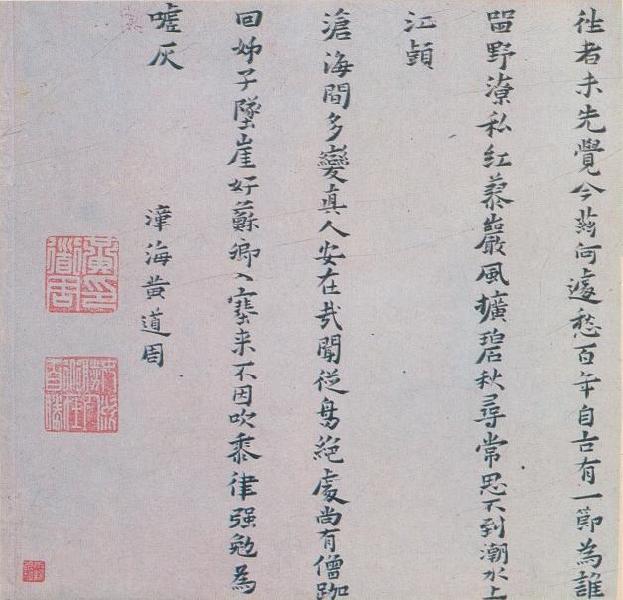 往者未先覺今茲何處愁百年自古有一節為誰
留野潦私紅蓼嚴風擴碧秋尋常思不到潮水上
江頭
滄海間多變真人安在哉聞從鳥絕處尚有僧跏
回姊子墜崖好蘇卿入塞来不因吹黍律强勉為
噓灰
漳海黃道周
黃道周印